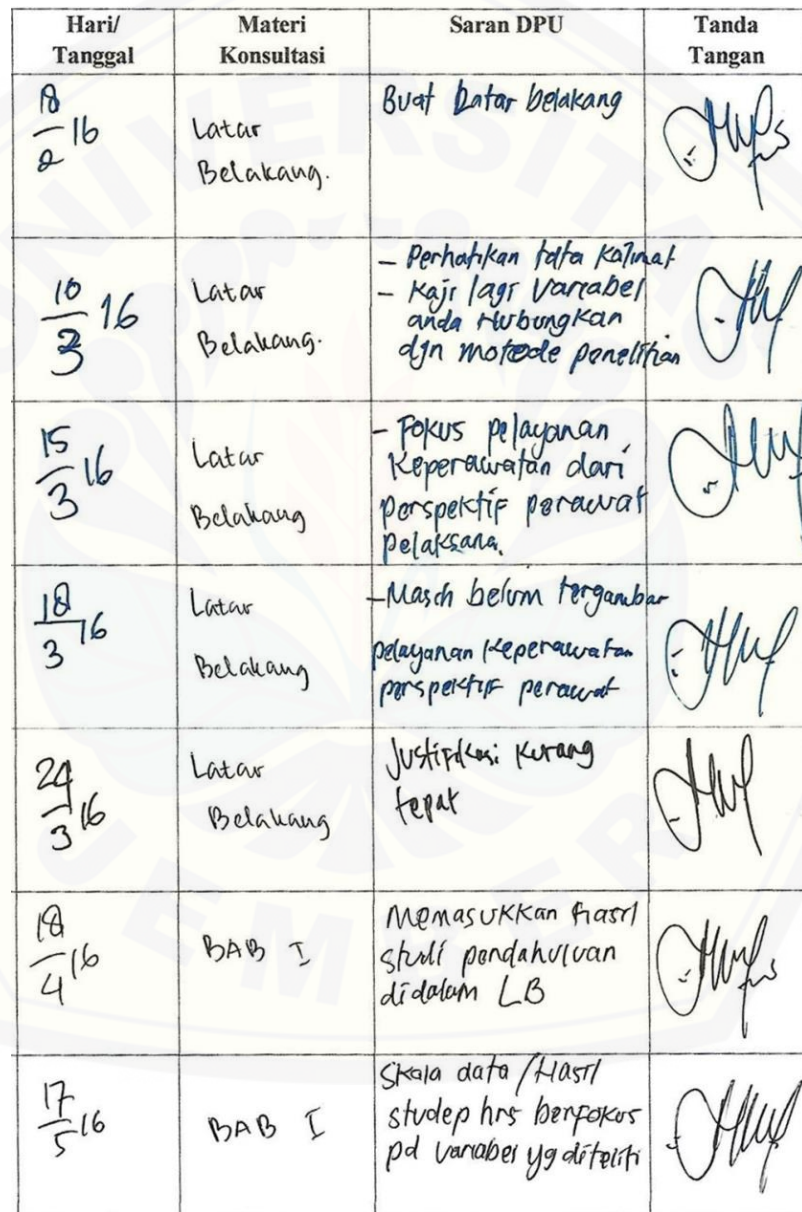 Hari/ Tanggal	Materi Konsultasi	Saran DPU	Tanda Tangan
18/2 16
Latar
Belakang.
Buat Latar belakang
10/3 16
Latar
Belakang.
- Perhatikan tata Kalimat
- Kaji lagi Variabel
anda Hubungkan
dgn motode penelitian
15/3 16
Latar
Belakang
- Fokus pelayanan
Keperawatan dari
perspektif perawat
pelaksana.
18/3 16
Latar
Belakang
- Masih belum tergambar
pelayanan Keperawatan
perspektif perawat
24/3 16
Latar
Belakang
Justifikasi Kurang
tepat
18/4 16
BAB I
Memasukkan hasil
studi pendahuluan
didalam LB
17/5 16
BAB I
Skala data / Hasil
studep hrs berfokus
pd variabel yg diteliti
UNIVERSITAS
JEMBER